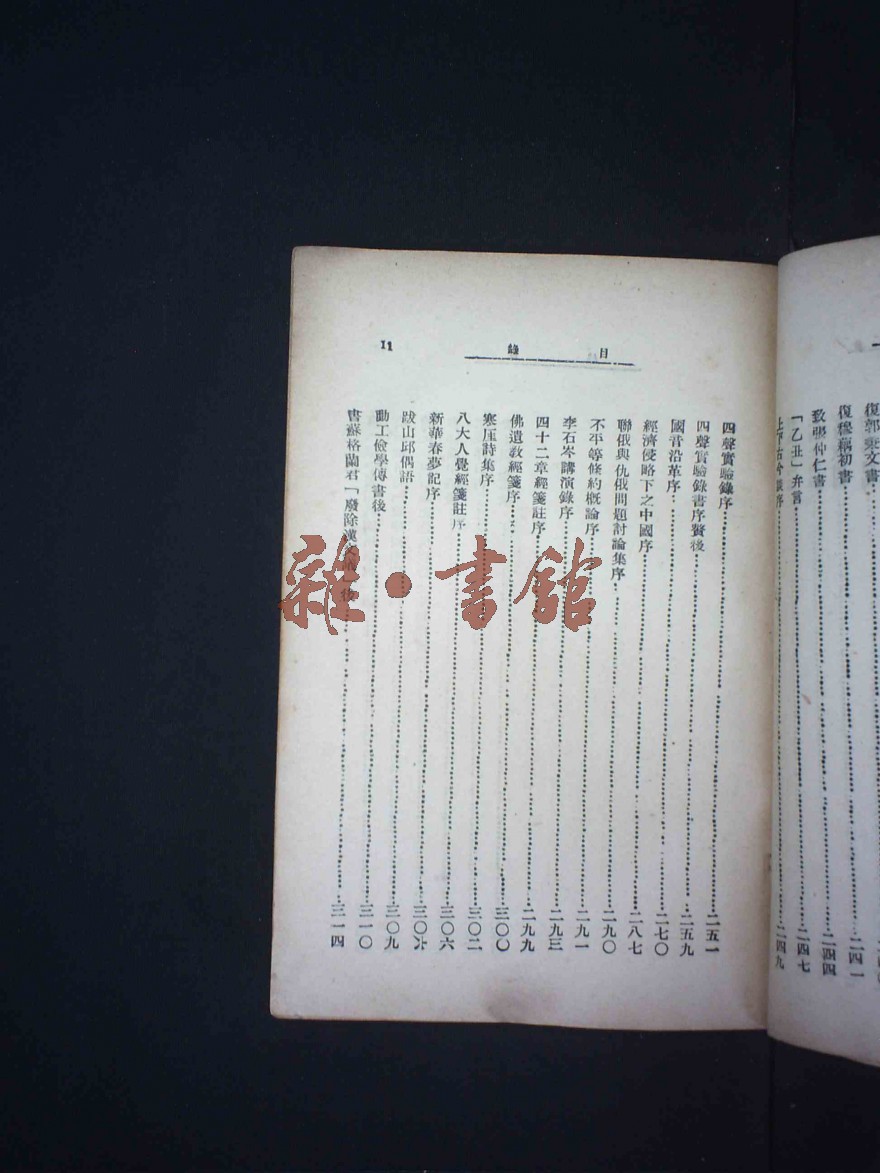 復穆藕初書……二四一
致張仲仁書……二四四
「乙丑」弁言……二四七
序……二四九
目錄
11
四聲實驗錄序……二五一
四聲實驗錄書序贅後……二五九
國音沿革序……二七〇
經濟侵略下之中國序……二八七
聯俄與仇俄問題討論集序……二九〇
不平等條約概論序……二九一
李石岑講演錄序……二九三
四十二章經箋註序……二九九
佛遺教經箋序……三〇〇
寒厓詩集序……三〇二
八大人覺經箋註序……三〇六
新華春夢記序……三〇六
跋山邱偶語……三〇九
勤工儉學傳書後……三一〇
書蘇格蘭君「廢除漢後……三一四
雜·書館